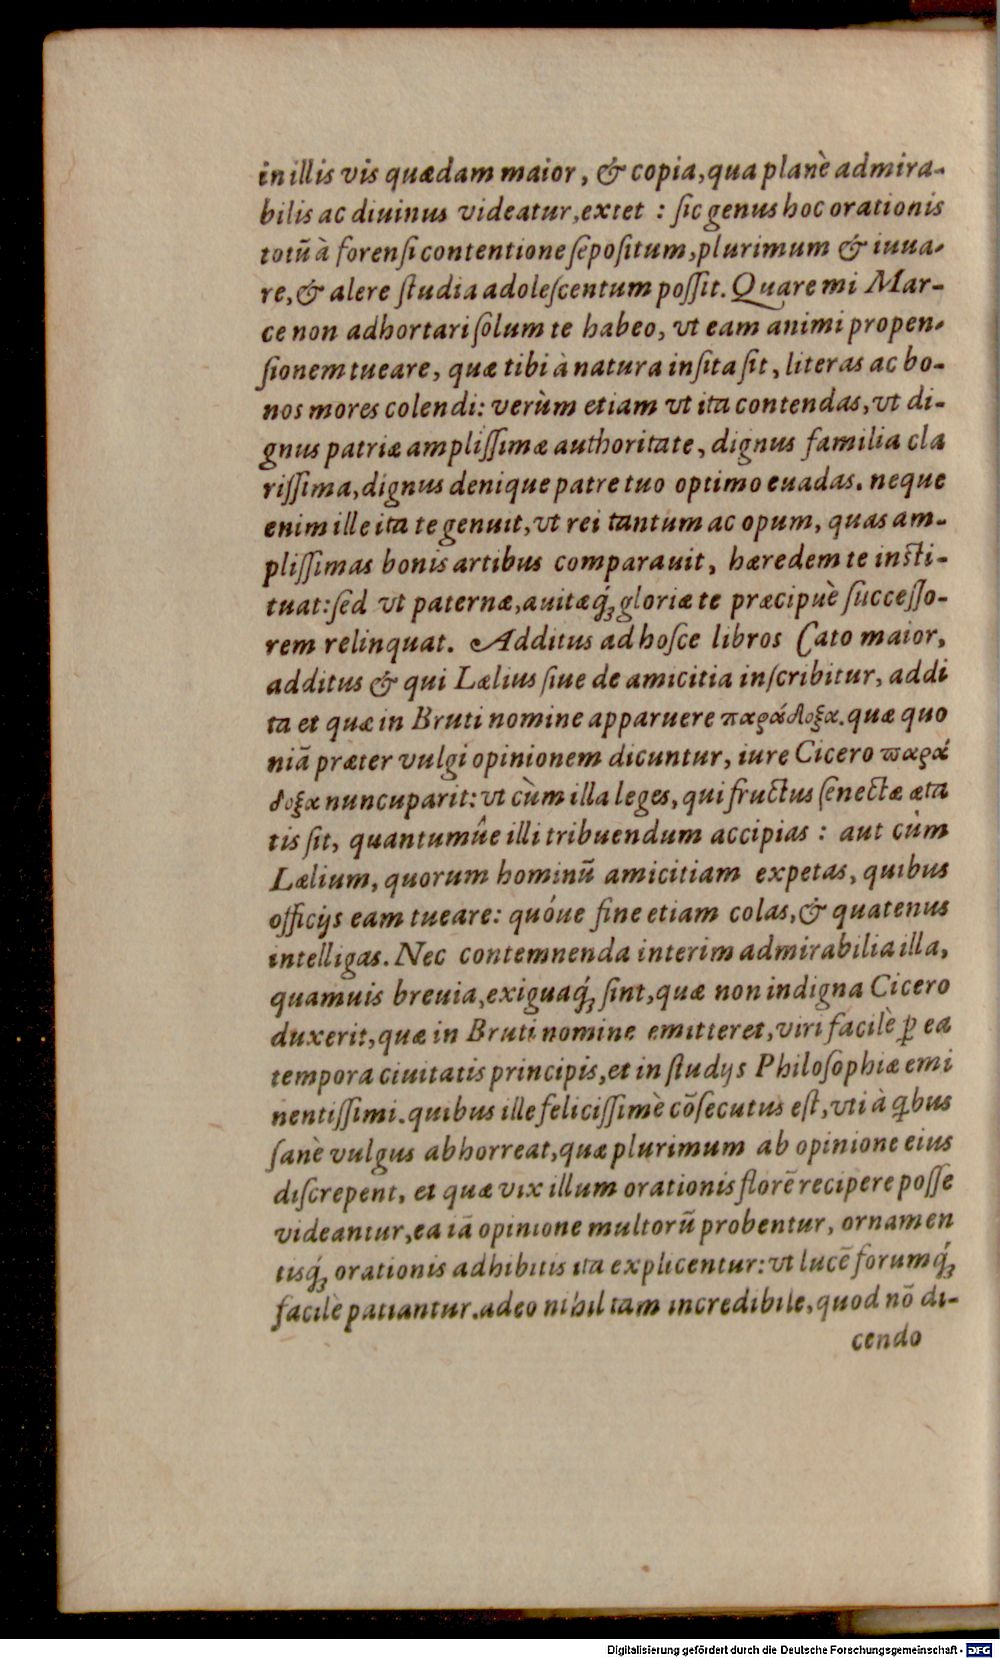 in illis vis quædam maior, & copia, qua planè admira-
bilis ac diuinus videatur, extet : ſic genus hoc orationis
totũ à forenſi contentione ſepoſitum, plurimum & iuua-
re, & alere ſtudia adoleſcentum poſſit. Quare mi Mar-
ce non adhortari ſolum te habeo, vt eam animi propen-
ſionem tueare, quæ tibi à natura inſita ſit, literas ac bo-
nos mores colendi: verùm etiam vt ita contendas, vt di-
gnus patriæ ampliſſimæ authoritate, dignus familia cla
riſſima, dignus denique patre tuo optimo euadas. neque
enim ille ita te genuit, vt rei tantum ac opum, quas am-
pliſſimas bonis artibus comparauit, hæredem te inſti-
tuat: ſed vt paternæ, auitæq́ꝫ gloriæ te præcipuè ſucceſſo-
rem relinquat. Additus ad hoſce libros Cato maior,
additus & qui Lælius ſiue de amicitia inſcribitur, addi
ta et quæ in Bruti nomine apparuere παράδοξα. quæ quo
niã præter vulgi opinionem dicuntur, iure Cicero ϖαρά
δοξα nuncuparit: vt cùm illa leges, qui fructus ſenectæ æta
tis ſit, quantumûe illi tribuendum accipias : aut cùm
Lælium, quorum hominũ amicitiam expetas, quibus
officijs eam tueare: quóue fine etiam colas, & quatenus
intelligas. Nec contemnenda interim admirabilia illa,
quamuis breuia, exiguaq́ꝫ ſint, quæ non indigna Cicero
duxerit, quæ in Bruti nomine emitteret, viri facilè ꝑ ea
tempora ciuitatis principis, et in ſtudijs Philoſophiæ emi
nentiſſimi. quibus ille feliciſſimè cõſecutus eſt, vti à ꝗbus
ſanè vulgus abhorreat, quæ plurimum ab opinione eius
diſcrepent, et quæ vix illum orationis florẽ recipere poſſe
videantur, ea iã opinione multorũ probentur, ornamen
tisq́ꝫ orationis adhibitis ita explicentur: vt lucẽ forumq́ꝫ
facilè patiantur. adeo nihil tam incredibile, quod nõ di-
cendo
Digitalisierung gefördert durch die Deutsche Forschungsgemeinschaft - DFG